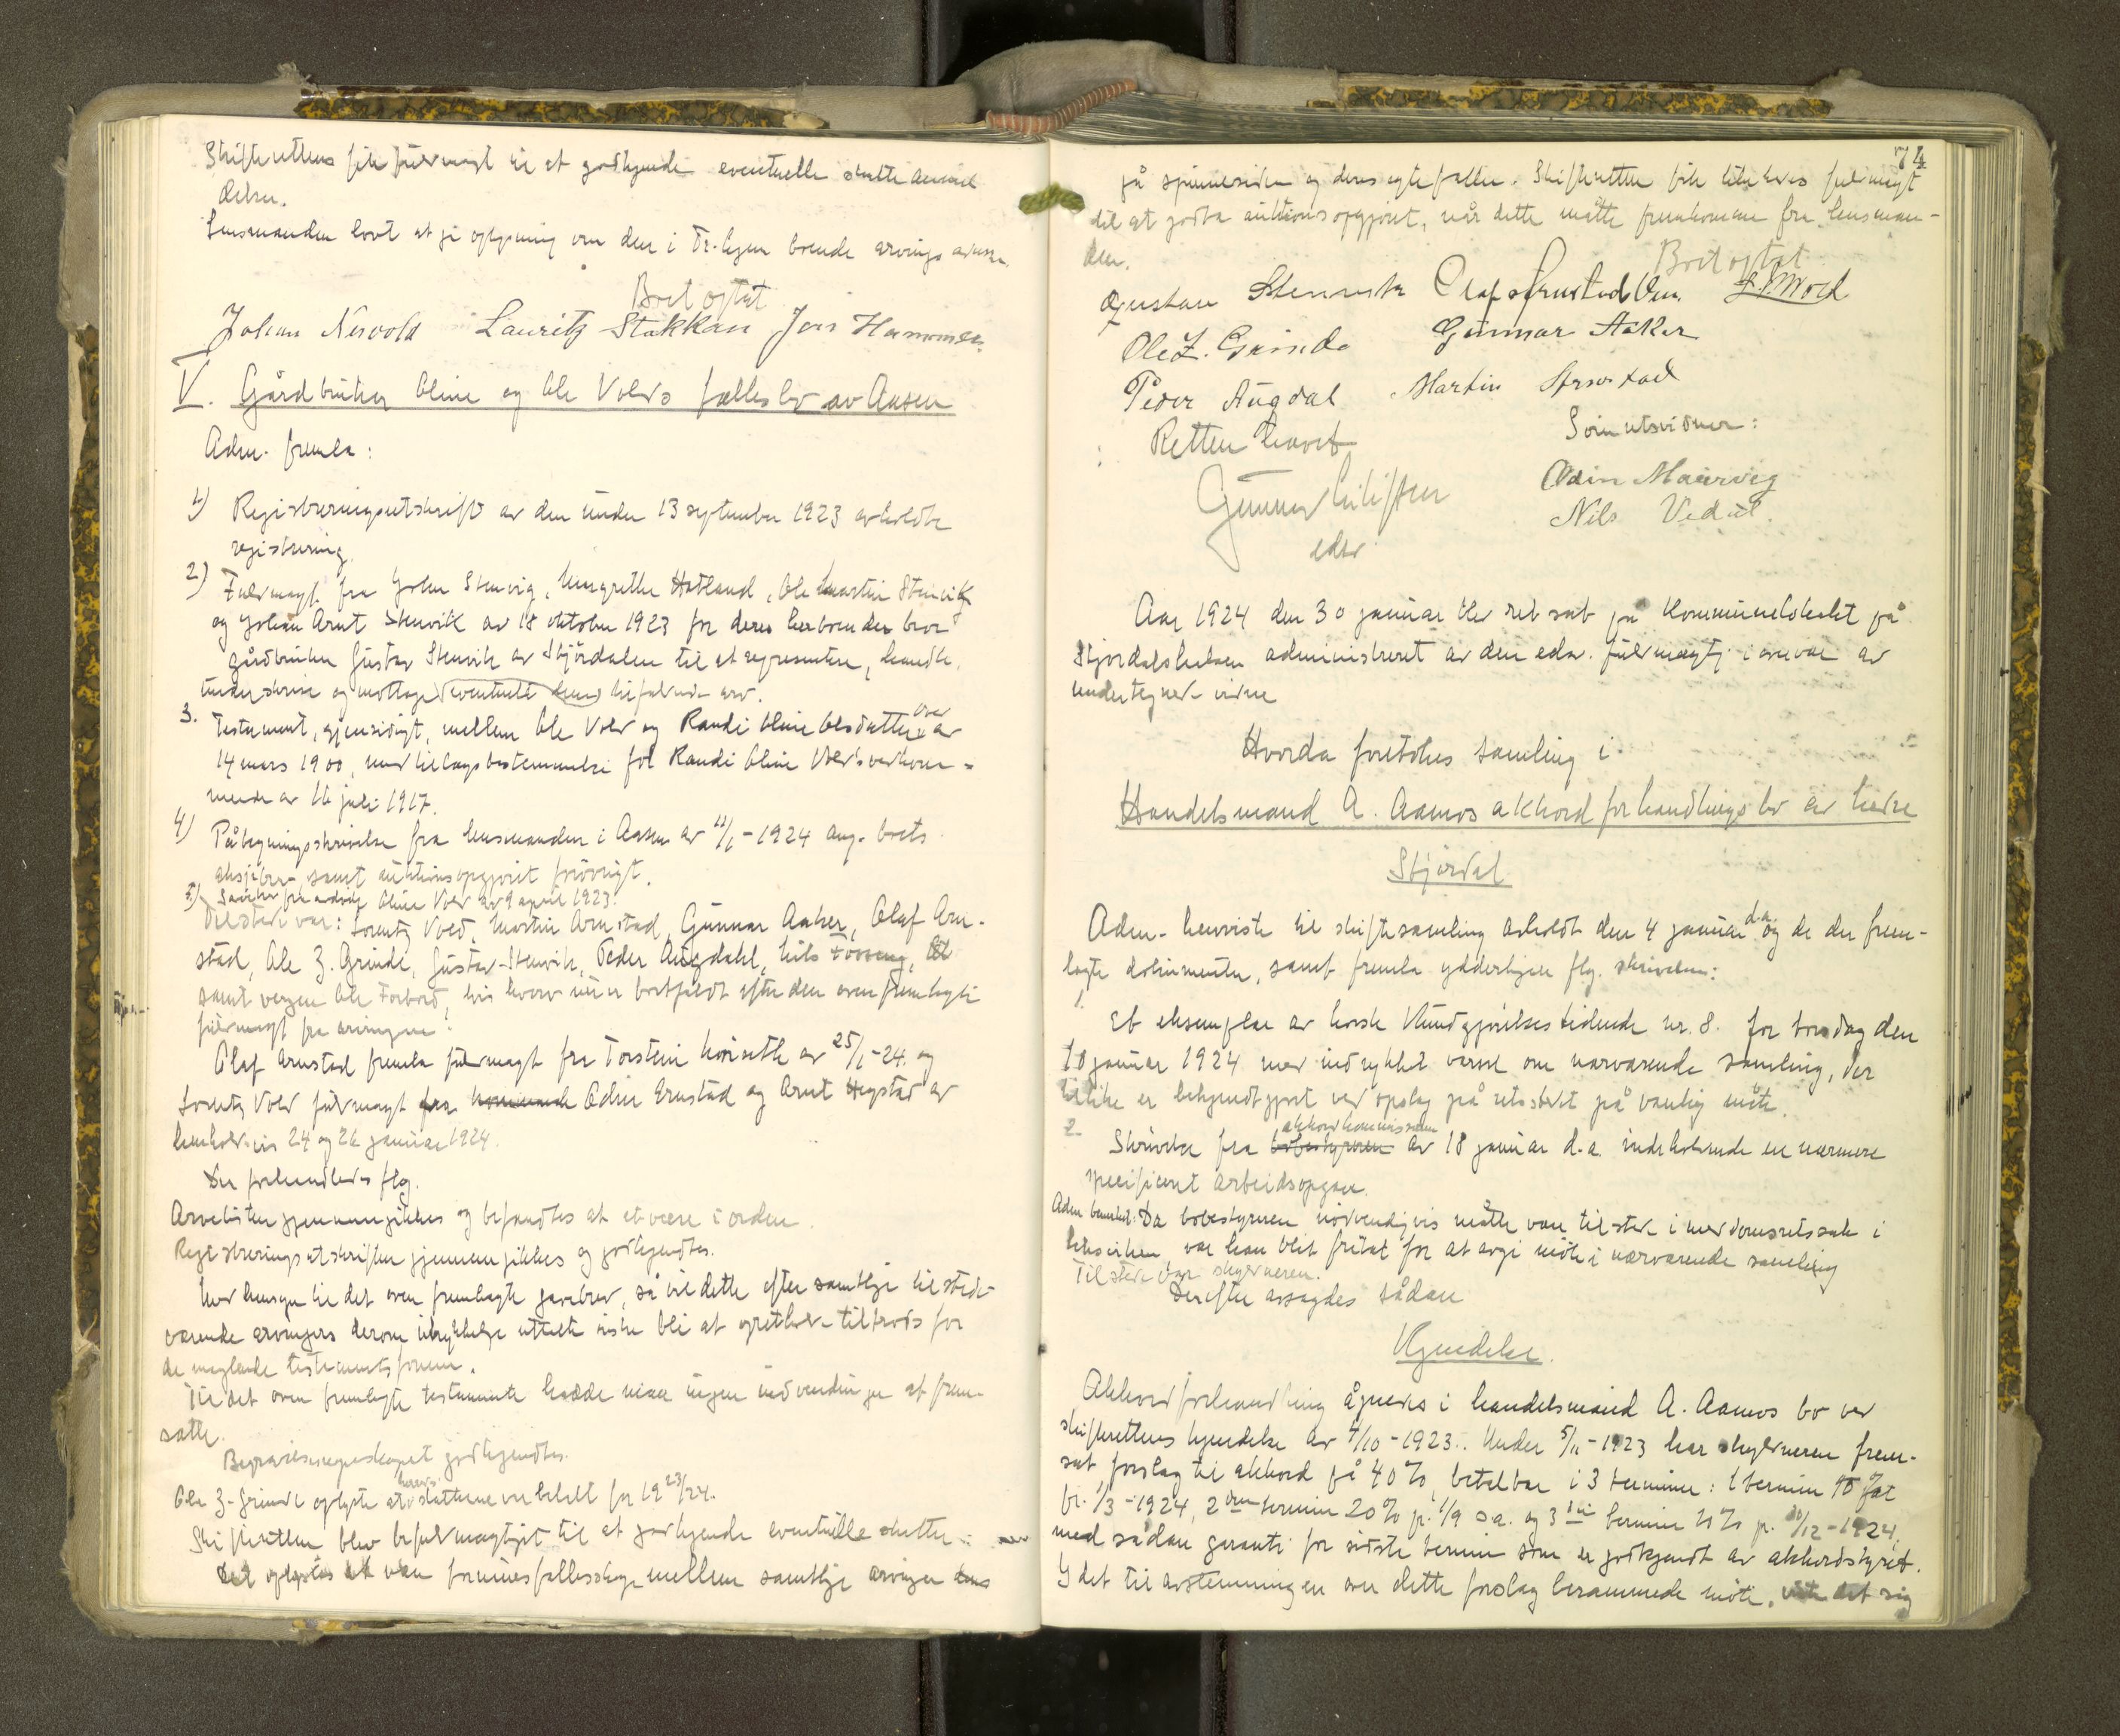 Skifterettens fik fuldmagt til at godkjende eventuelle skatte
Lensmanden lovt at gi oplysning om den i Tr.hjem boende arvings adresse
Boet optat
Johan Nesvold Lauritz Stokkan Jon Hammer
V. Gårdbruker Oline og Ole Volds fællesbo av Aasen
Adm. fremla:
1) Registreringsutskrift av den under 13 september 1923 avholdte
registrering.
2) Fuldmagt fra Johan Stenvig, Margrethe Hotland, Ole Martin Stenvik
og Johan Arnt Stenvik av 18 oktober 1923 for deres herboende bror
gårdbruker Gustav Stenvik av Stjørdalen til at representere, handle,
underskrive og mottage eventuelt dem tilfaldende arv.
3. Testament, gjensidigt, mellem Ole Vold og Randi Oline Olsdatter Vold av
14 mars 1900, med tillægsbestemmelse for Randi Oline Vold's vedkom-
mende av 16 juli 1917.
4) Påtegningsskrivelse fra lensmanden i Aasen av 21/1-1924 ang. boets
aksjebrev samt auktionsopgjøret forøvrigt.
5) Gavebrev fra avdøde Oline Vold av 9 april 1923.
Tilstede var: Lorentz Vold, Martin Arnstad, Gunnar Aaker, Olaf Arn-
stad, Ole Z. Grinde, Gustav Stenvik, Peder Augdahl, Nils
samt vergen Ole Forbord, hvis hverv nu er bortfaldt efter den oven fremlagte
fuldmagt fra arvingene.
Olaf Arnstad fremla fuldmagt fra Torstein av 25/1-24 og
Lorentz Vold fuldmagt fra Odin Ernstad og Arnt Hegstad av
henholdsvis 24 og 26 januar 1924.
Der forhandledes flg.
Arvelisten gjennemgikkes og befandtes at være i orden.
Registreringsutskriften gjennemgikkes og godkjendtes.
Med hensyn til det oven fremlagte gavebrev, så vil dette efter samtlige tilstede-
værende arvingers derom uttrykkelige uttalte ønske bli at opretholde tiltrods for
de manglende testamentsformer.
Til det oven fremlagte testamente hadde man ingen indvendinger at frem-
sætte.
Begravelsesregnskapet godkjendtes.
Ole Z. Grinde oplyste at skatterne var betalt for 1923/24.
Skifteretten blev befuldmægtiget til at godkjende eventuelle skatte
Det oplystes at være formuesfællesskap mellem samtlige arvinger
74
på spindesiden og deres egtefæller. Skifteretten fik likeledes fuldmagt
til at godta auktionsopgjøret, når dette måtte fremkomme fra lensman-
den.
Boet optat
Gustav Stenvik Olaf Arnstad L. Vold
Ole Z. Grinde Gunnar Aaker
Peder Augdal Martin Arnstad
Retten hævet
Som utsvidner:
Gunnar
edsv.
Odin Maurvig
Nils Vedul
Aar 1924 den 30 januar blev ret sat på kommunelokalet på
Stjørdalshalsen administreret av den edsv. fuldmægtig i overvær av
undertegnede vidne
Hvorda foretokes samling i
Handelsmand A. Aamos akkordforhandlingsbo av nedre
Stjørdal
Adm. henviste til skiftesamling avholdt den 4 januar d.a. og de der frem-
lagte dokumenter, samt fremla yderligere flg. skrivelser:
1. Et eksemplar av norsk Kundgjørelsestidende nr. 8. for torsdag den
10 januar 1924 med indrykket varsel om nærværende samling, der
tillike er bekjendtgjort ved opslag på retsstedet på vanlig måte.
2. Skrivelse fra bobestyreren akkordkommissionen av 18 januar d.a. indeholdende en nærmere
specificeret arbeidsopgave.
Adm. bemerket: Da bobestyreren nødvendigvis måtte være tilstede i meddomsretssak i
Leksviken var han blit fritat for at avgi møte i nærværende samling
Tilstede var skyldneren.
Derefter avsagdes sådan
Kjendelse.
Akkordforhandling åpnedes i handelsmand A. Aamos bo ved
skifterettens kjendelse av 4/10-1923. Under 5/11-1923 har skyldneren frem-
sat forslag til akkord på 40%, betalbar i 3 terminer: 1 termin 10 pct
pr. 1/3-1924, 2den termin 20% pr. 1/9 s.a. og 3die termin 10% pr. 30/12-1924,
med sådan garanti for sidste termin som er godkjendt av akkordstyret.
I det til avstemningen over dette forslag berammede møte, viste det sig